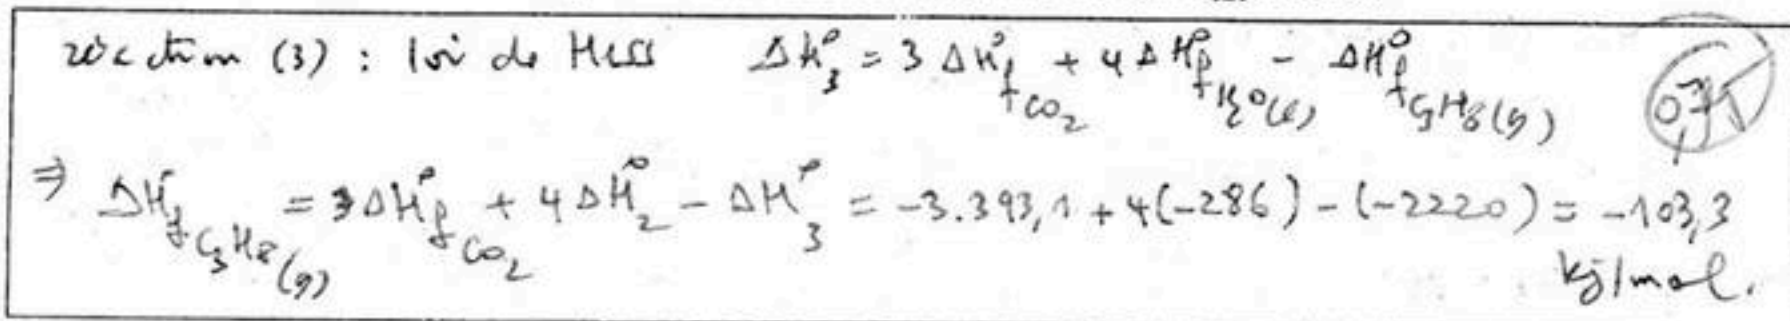 réaction (3) : loi de Hess ΔH°₃ = 3 ΔH°f CO₂ + 4 ΔH°f H₂O(l) - ΔH°f C₃H₈(g) 0,75
⇒ ΔH°f C₃H₈(g) = 3ΔH°f CO₂ + 4 ΔH°₂ - ΔH°₃ = -3.393,1 + 4(-286) - (-2220) = -103,3
kJ/mol.